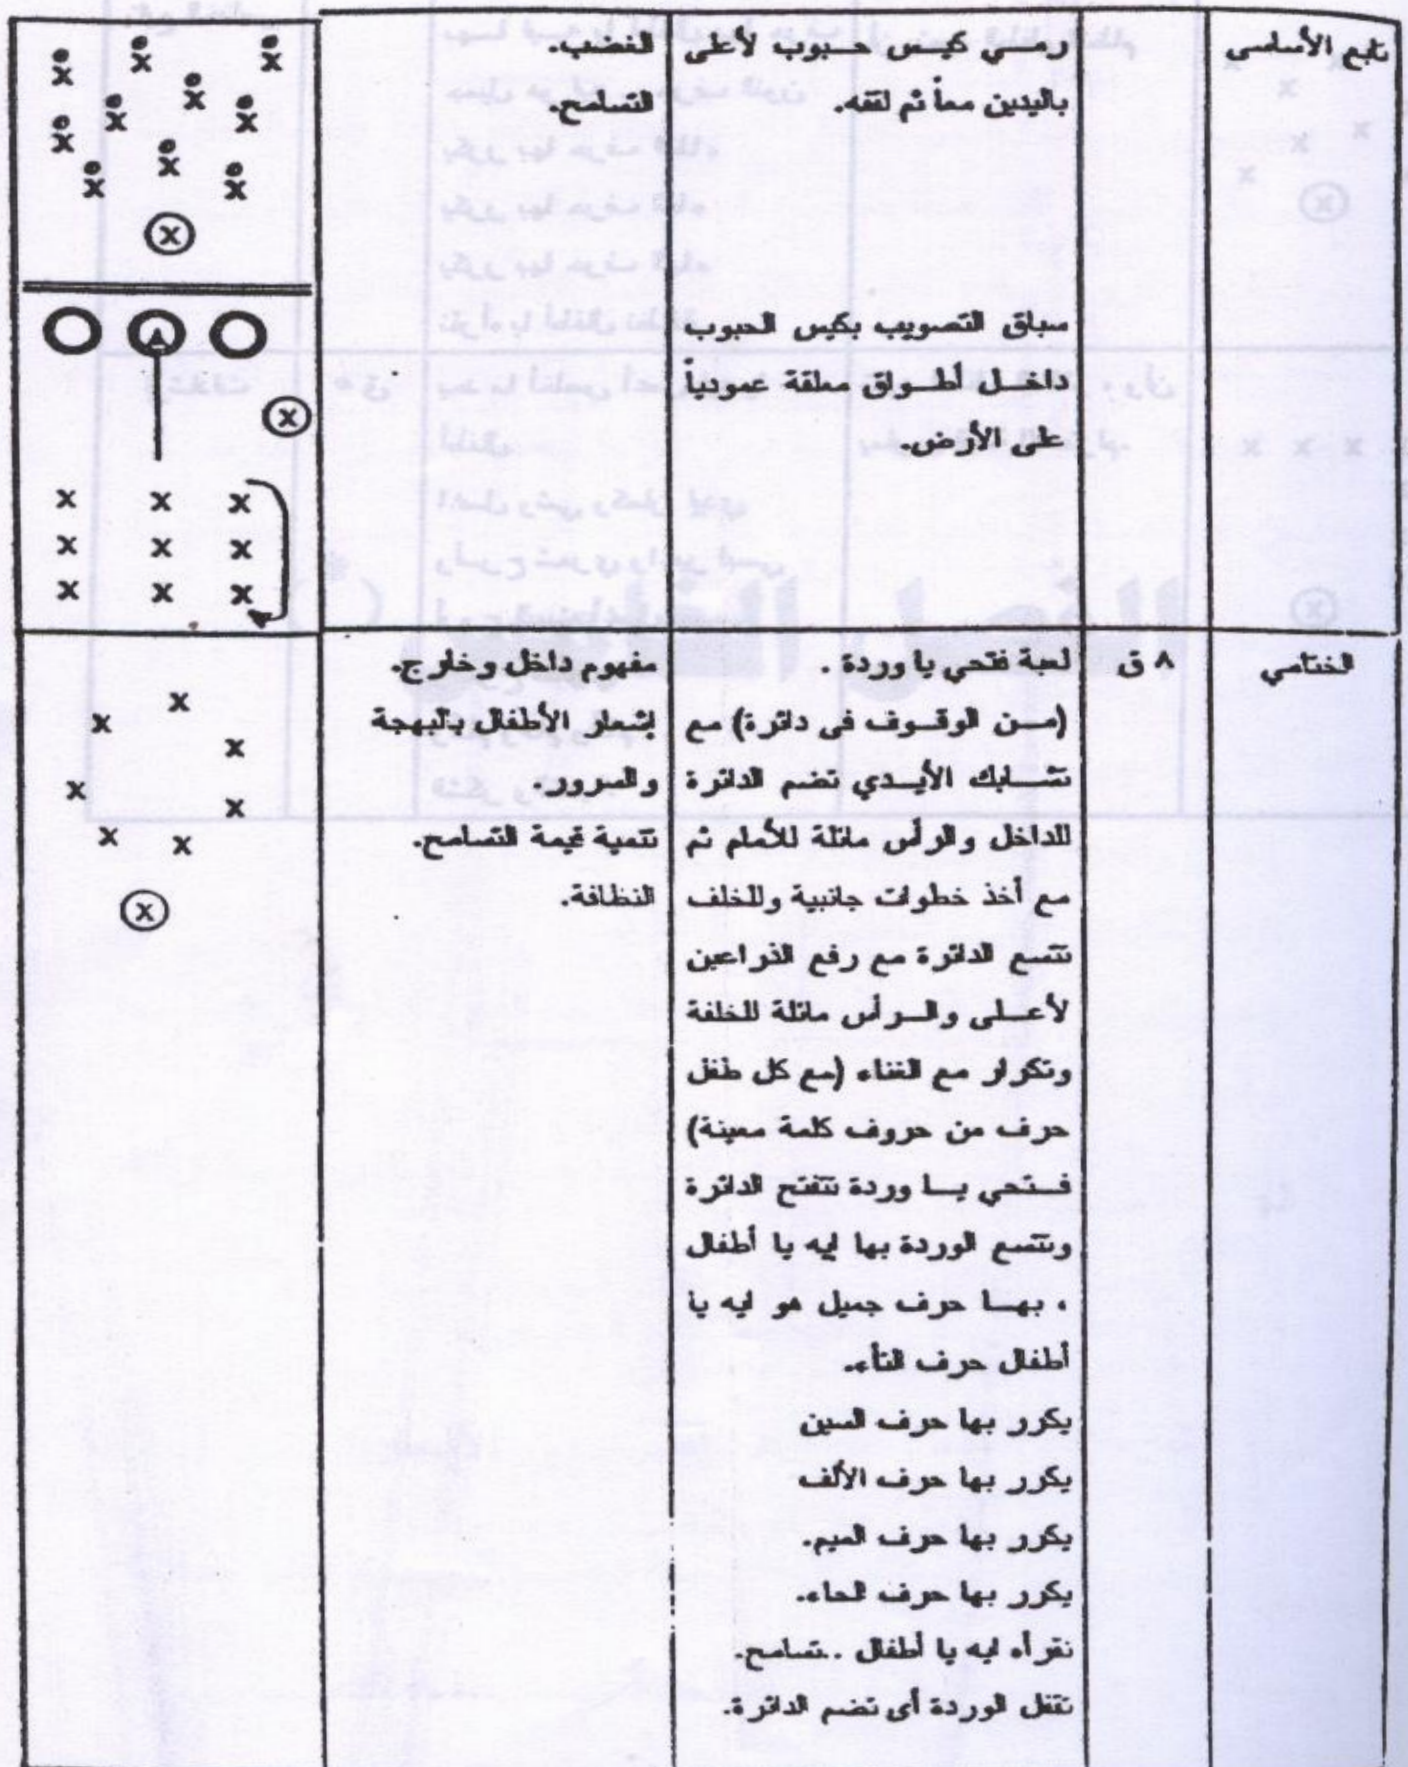 تابع الأساسى
رمـي كيـس حـبوب لأعلى
باليدين معاً ثم لقفه.
الغضب.
التسامح.
سباق التصويب بكيس الحبوب
داخـل أطـواق معلقة عمودياً
على الأرض.
الختامي
٨ ق
لعبة فتحي يا وردة .
(مـن الوقـوف فى دائرة) مع
تشـابك الأيـدي تضم الدائرة
للداخل والرأس مائلة للأمام ثم
مع أخذ خطوات جانبية وللخلف
تتسع الدائرة مع رفع الذراعين
لأعـلى والـرأس مائلة للخلفة
وتكرار مع الغناء (مع كل طفل
حرف من حروف كلمة معينة)
فـتحي يـا وردة تتفتح الدائرة
وتتسع الوردة بها ايه يا أطفال
، بهـا حرف جميل هو ايه يا
أطفال حرف التاء.
يكرر بها حرف السين
يكرر بها حرف الألف
يكرر بها حرف الميم.
يكرر بها حرف الحاء.
نقرأه ايه يا أطفال ..تسامح.
تقفل الوردة أى تضم الدائرة.
مفهوم داخل وخارج.
إشعار الأطفال بالبهجة
والسرور.
تنمية قيمة التسامح.
النظافة.